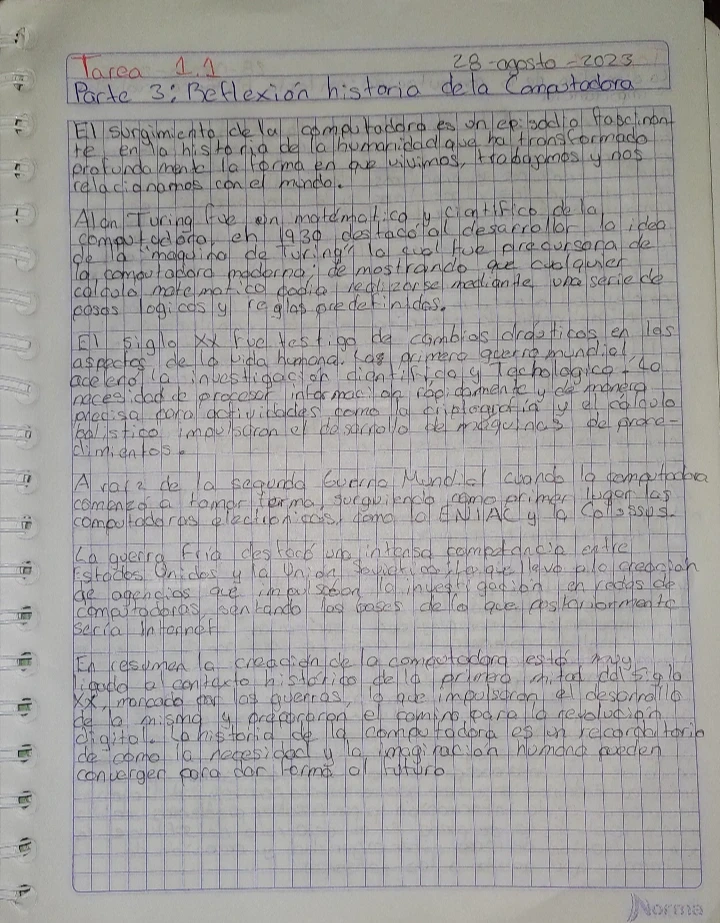 Tarea 1.1
28-agosto-2023
Parte 3: Reflexión historia de la Computadora
El surgimiento de la computadora es un episodio fascinan-
te en la historia de la humanidad que ha transformado
profundamente la forma en que vivimos, trabajamos y nos
relacionamos con el mundo.
Alan Turing fue un matematico y cientifico de la
computadora, en 1930 destado al desarrollar la idea
de la "maquina de Turing" la cual fue precursora de
la computadora moderna; demostrando que cualquier
calculo matematico podia realizarse mediante una serie de
pasos logicos y reglas predefinidas.
El siglo XX fue testigo de cambios drásticos en las
aspectos de la vida humana. Las primera guerra mundial,
acelero la investigacion cientifica y Tecnologica. La
necesidad de procesar informacion rápidamente y de manera
precisa para actividades como la criptografia y el cálculo
balistico impulsaron el desarrollo de maquinas de proce-
dimientos.
A raiz de la segunda Guerra Mundial cuando la computadora
comenzó a tomar forma, surguiendo como primer lugar las
computadoras electronicas, como la ENIAC y la Colossus.
La guerra Fria destacó una intensa competencia entre
Estados Unidos y la Union Sovietica lo que llevo a la creacion
de agencias que impulsaron la investigación en redes de
computadoras, sentando las bases de lo que posteriormente
seria Internet
En resumen la creación de la computadora está muy
ligado al contexto histórico de la primera mitad del siglo
XX, marcado por las guerras, lo que impulsaron el desarrollo
de la misma y prepararon el camino para la revolución
digital. La historia de la computadora es un recordatorio
de como la necesidad y la imaginación humana pueden
converger para dar forma al futuro
Norma